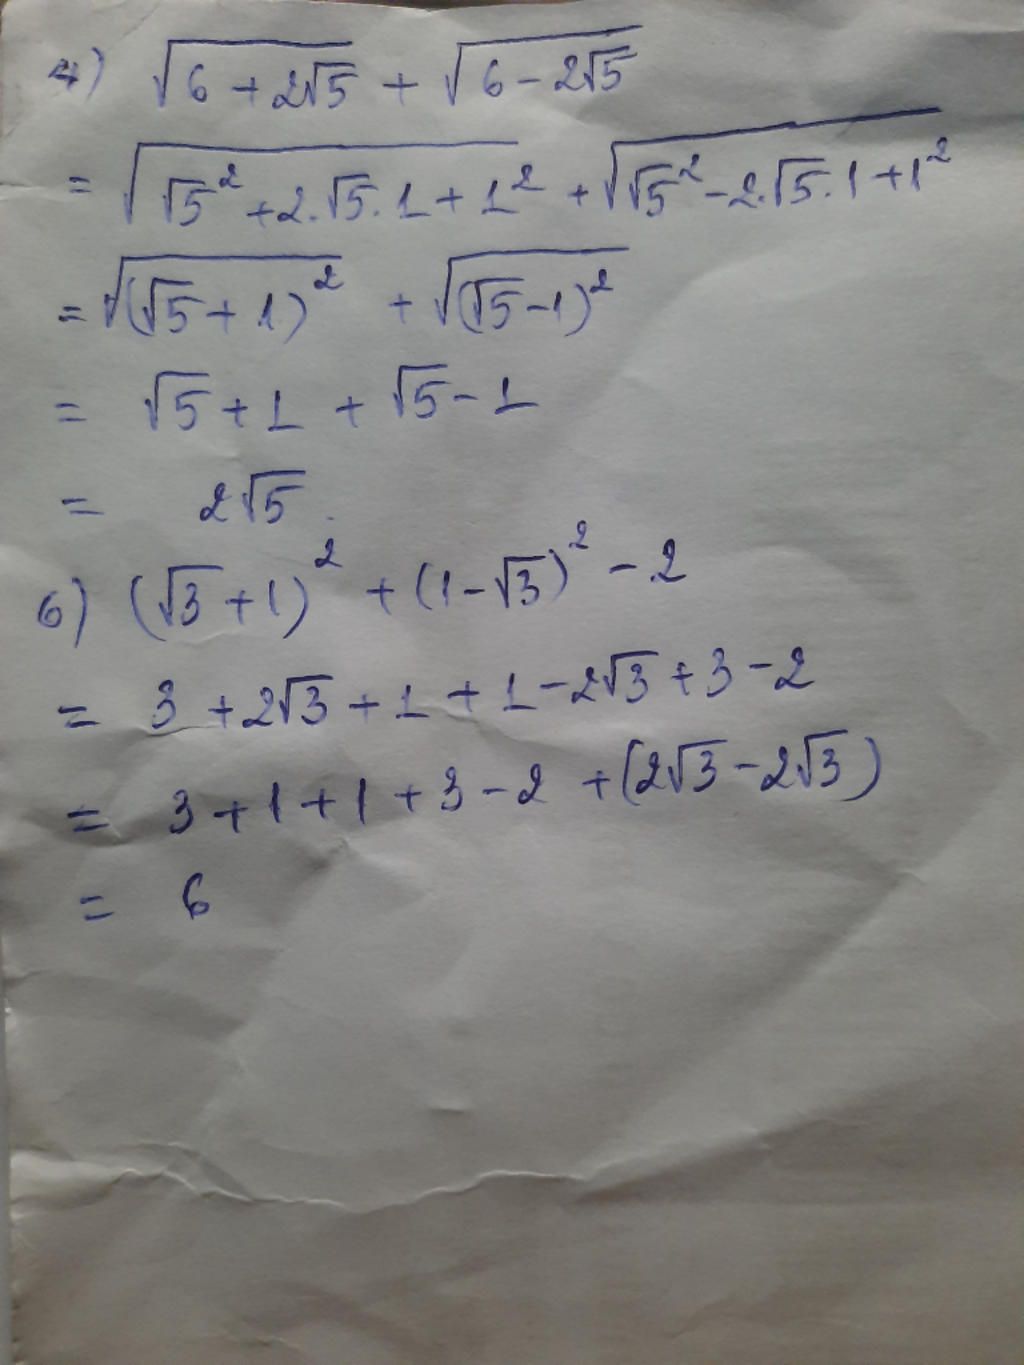 4) √(6 + 2√5) + √(6 - 2√5)
= √(√5² + 2.√5.1 + 1²) + √(√5² - 2.√5.1 + 1²)
= √((√5 + 1)²) + √((√5 - 1)²)
= √5 + 1 + √5 - 1
= 2√5.
6) (√3 + 1)² + (1 - √3)² - 2
= 3 + 2√3 + 1 + 1 - 2√3 + 3 - 2
= 3 + 1 + 1 + 3 - 2 + (2√3 - 2√3)
= 6